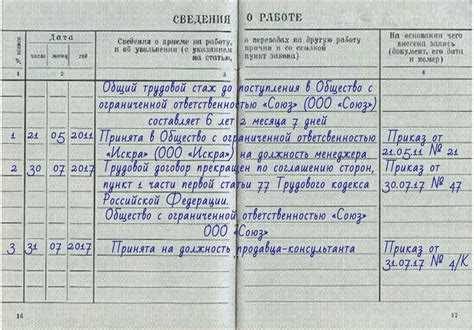 СВЕДЕНИЯ О РАБОТЕ
№ записи
Дата
число
месяц
год
Сведения о приеме на работу, о переводах на другую работу
и об увольнении (с указанием причин и со ссылкой
на статью, пункт закона)
На основании чего
внесена запись
(документ, его дата
и номер)
1 2 3 4
Общий трудовой стаж до поступления в Общество с
ограниченной ответственностью «Союз» (ООО «Союз»)
составляет 6 лет 2 месяца 7 дней
1 21 05 2011 Принята в Общество с ограниченной ответсвенностью Приказ от
«Искра» (ООО «Искра») на должность менеджера 21.05.11 № 21
2 30 07 2017 Трудовой договор прекращен по соглашению сторон, Приказ от
пункт 1 части первой статьи 77 Трудового кодекса 30.07.17 № 47
Российской Федерации.
Общество с ограниченной ответственностью «Союз»
ООО «Союз»
3 31 07 2017 Принята на должность продавца-консультанта Приказ от
31.07.17 № 4/К
16 17